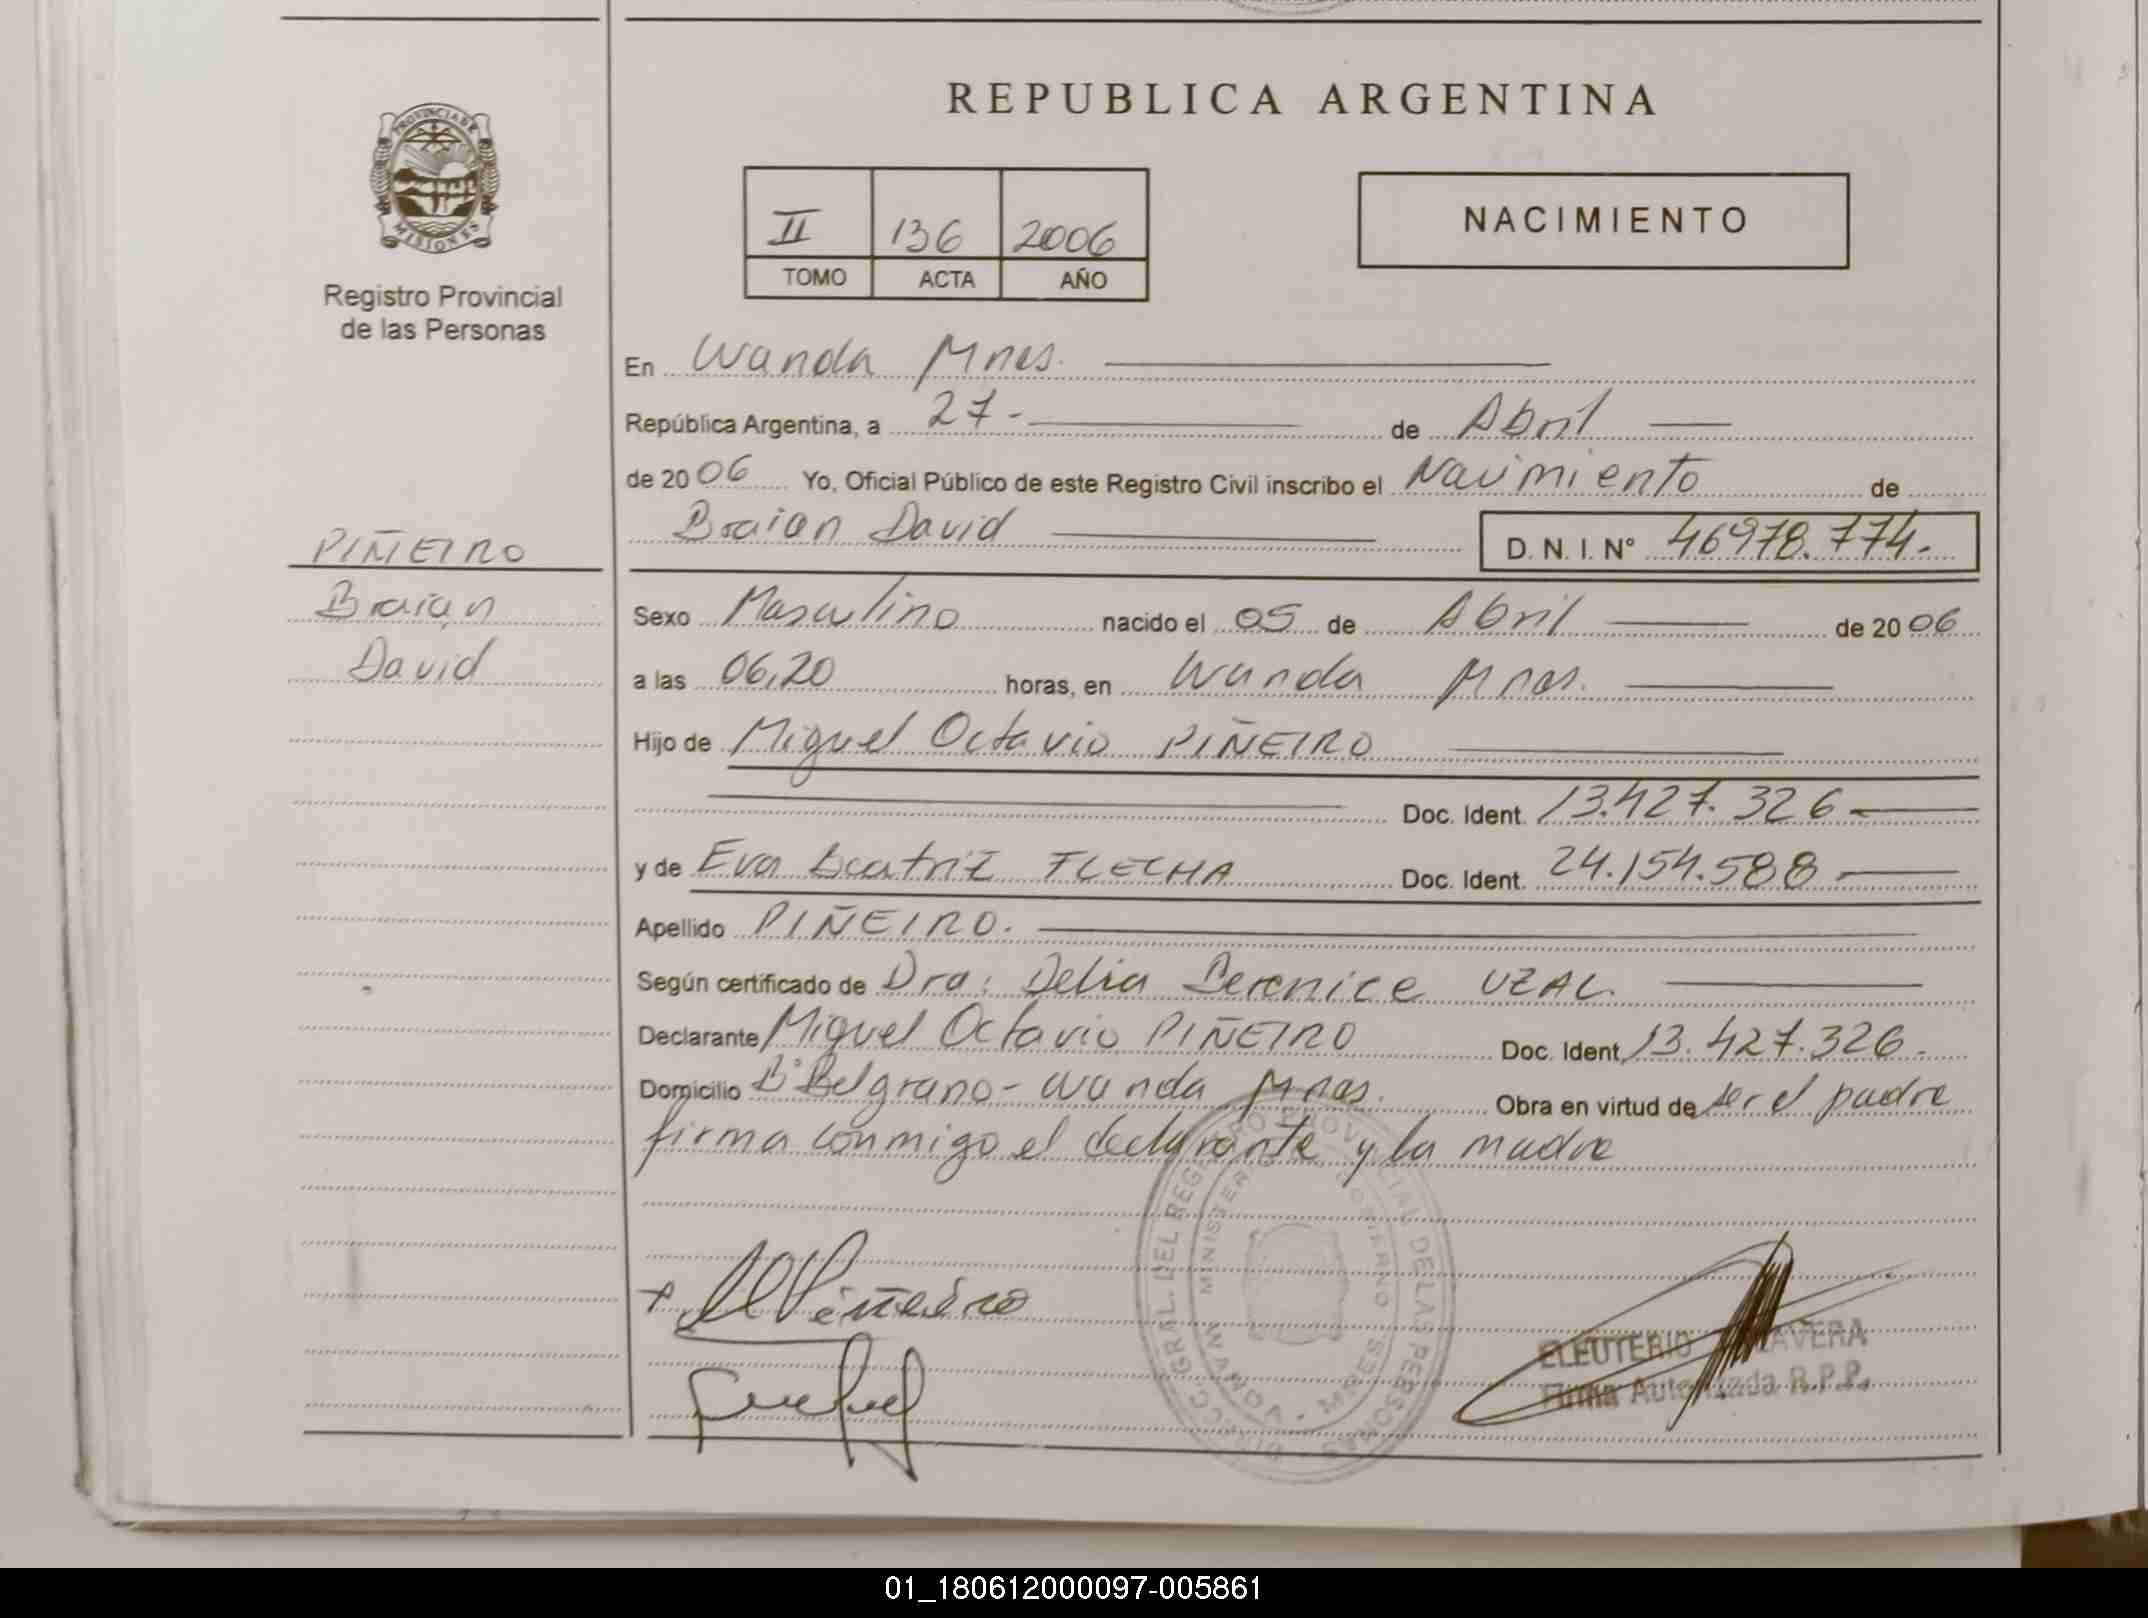 REPUBLICA ARGENTINA
PROVINCIA DE
MISIONES
Registro Provincial
de las Personas
II 136 2006
TOMO ACTA AÑO
NACIMIENTO
En Wanda Mnes.
República Argentina, a 27 - de Abril
de 2006 Yo, Oficial Público de este Registro Civil inscribo el Nacimiento de
Braian David D. N. I. Nº 46978.774.
PIÑEIRO
Braian
David
Sexo Masculino nacido el 05 de Abril de 2006
a las 06,20 horas, en Wanda Mnes.
Hijo de Miguel Octavio PIÑEIRO
Doc. Ident. 13.427.326
y de Eva Beatriz FLECHA Doc. Ident. 24.154.588
Apellido PIÑEIRO.
Según certificado de Dra: Delia Berenice UZAL.
Declarante Miguel Octavio PIÑEIRO Doc. Ident. 13.427.326.
Domicilio Bº Belgrano - Wanda Mnes. Obra en virtud de ser el padre
firma conmigo el declarante y la madre
PROVINCIAL DE LAS PERSONAS
WANDA - MNES.
ELEUTERIO
Firma Autorizada R.P.P.
01_180612000097-005861